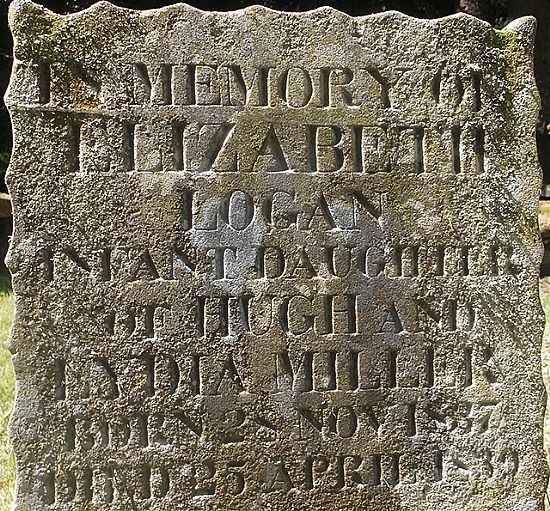 IN MEMORY OF
ELIZABETH
LOGAN
INFANT DAUGHTER
OF HUGH AND
LYDIA MILLER
BORN 28 NOV 1837
DIED 25 APRIL 1839